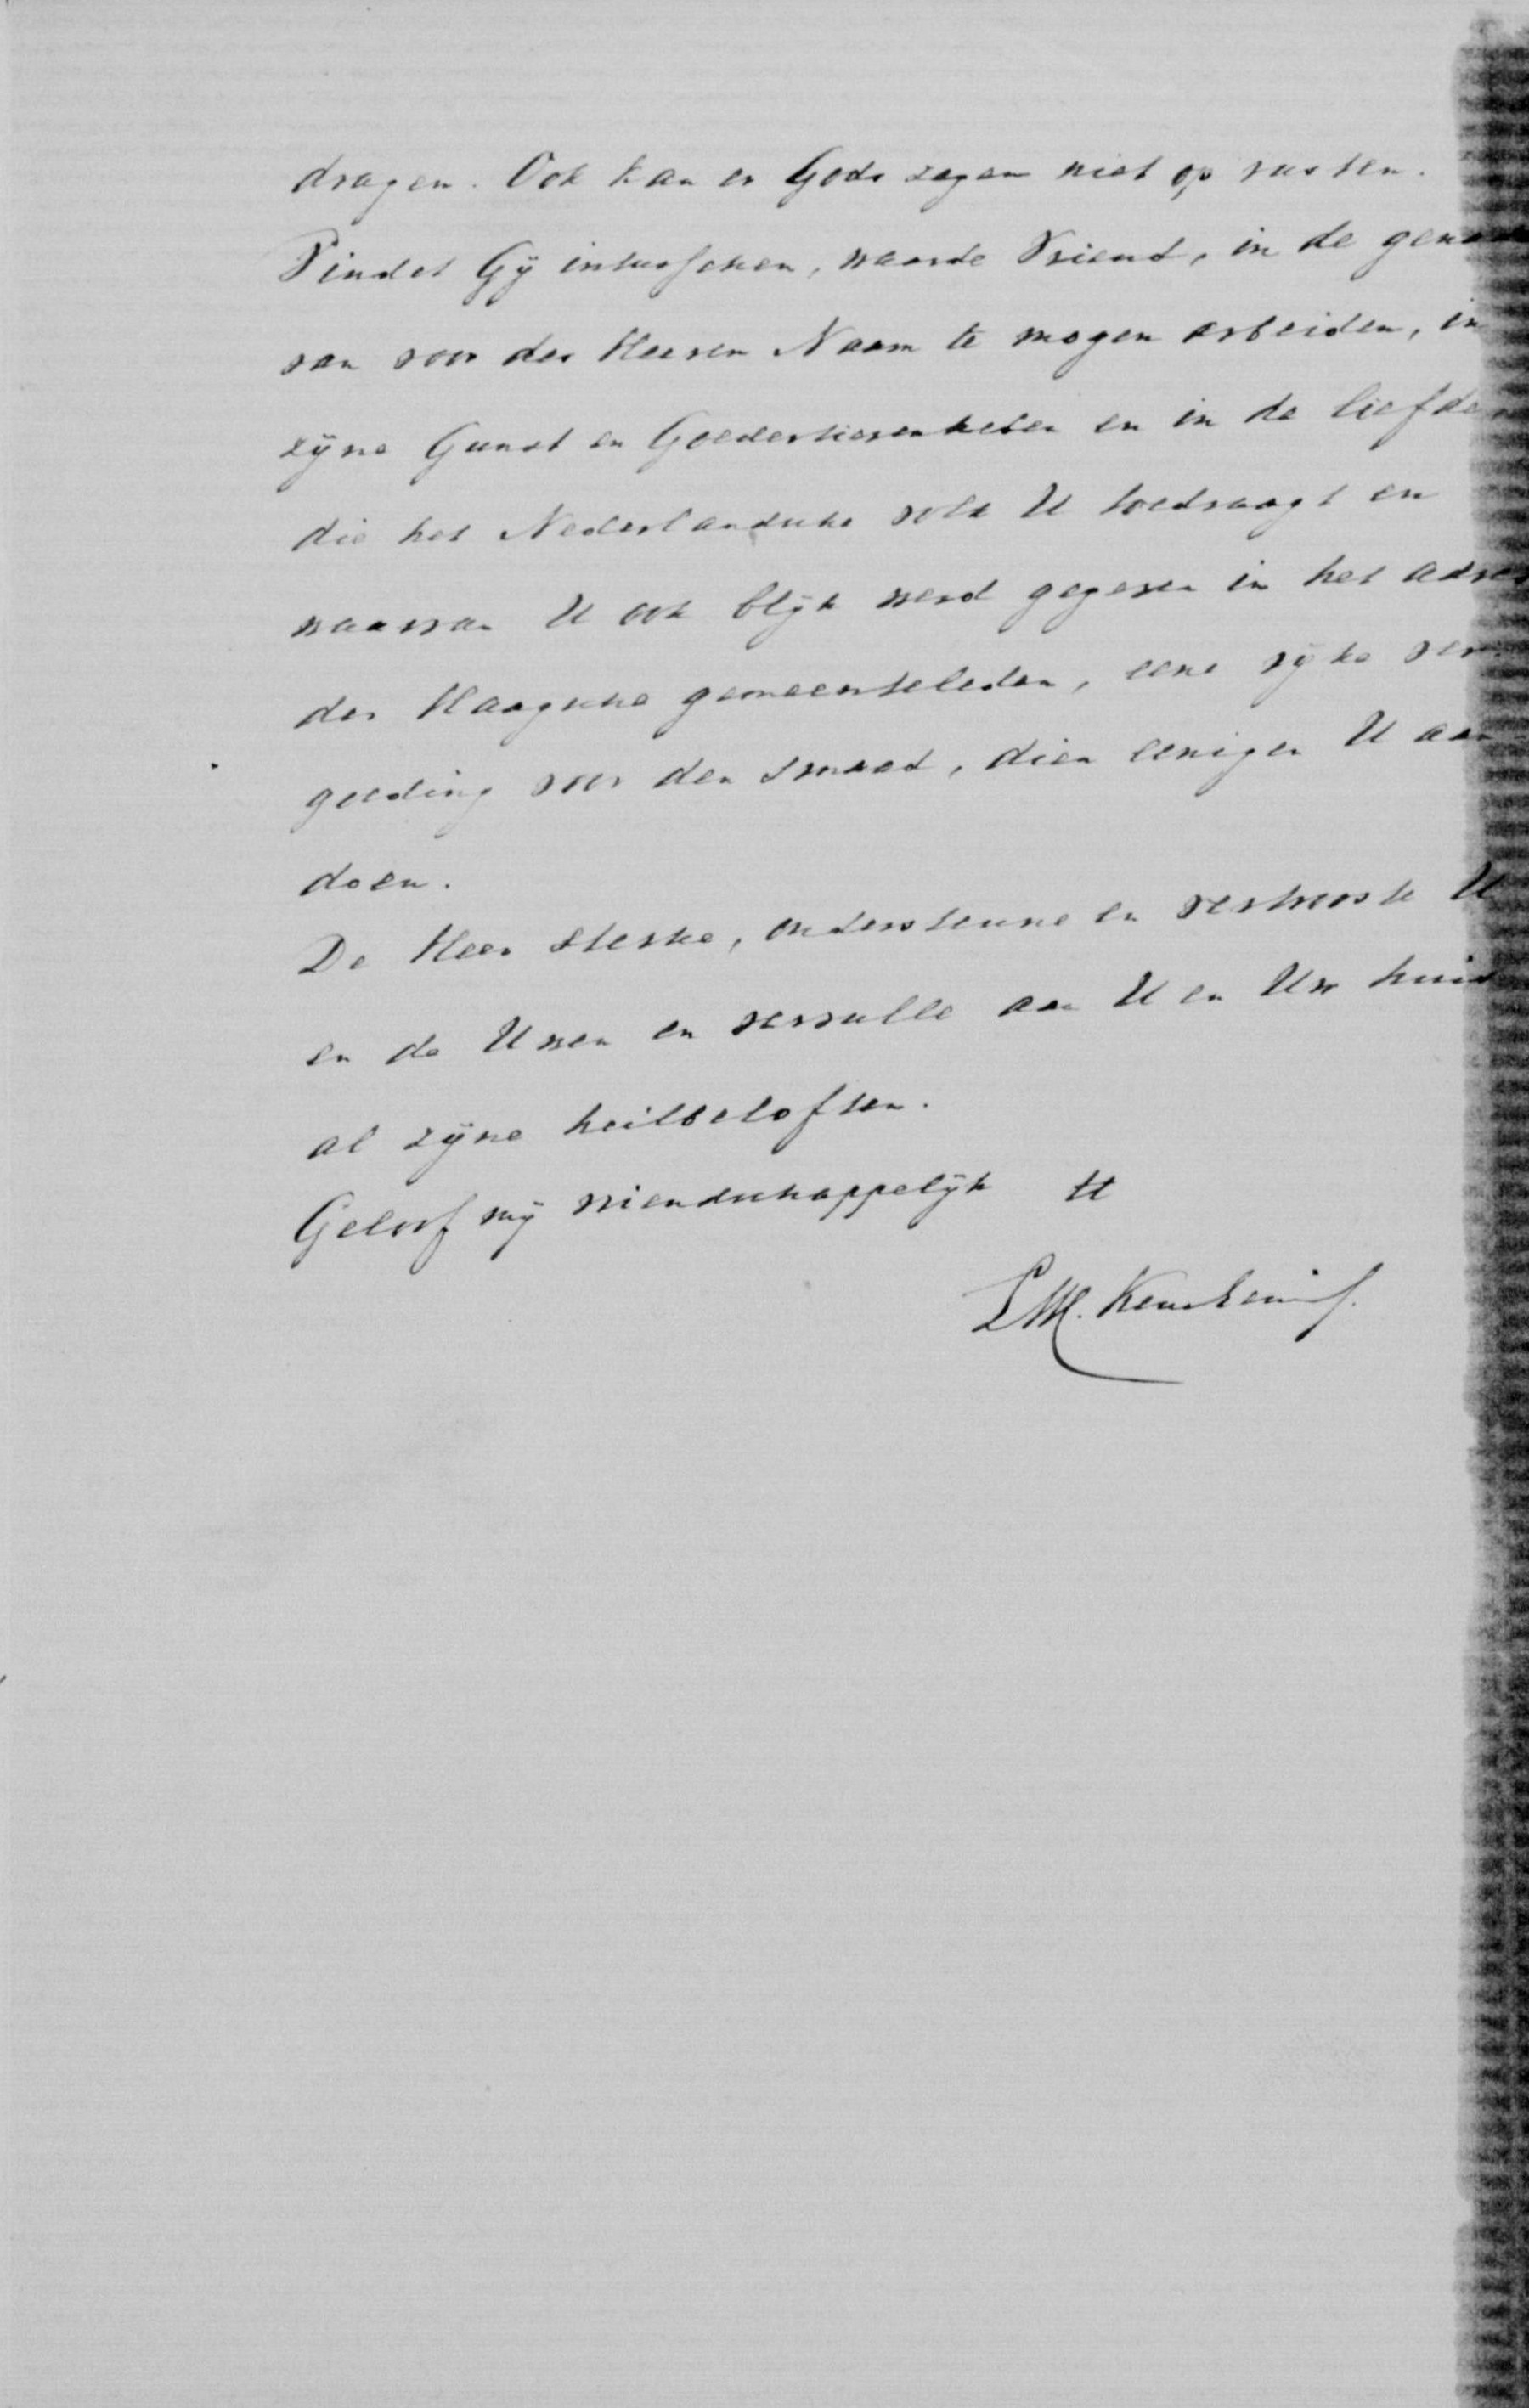 dragen. Ook kan er Gods zegen niet op rusten.
Vindet Gÿ intusschen, waarde Vriend, in de gena
van voor des Heeren Naam te mogen arbeiden, in
zÿne Gunst en Goedertierenheden en in de liefde
die het Nederlandsche volk U toedraagt en
waarvan U ook blÿk werd gegeven in het adres
der Haagsche gemeenteleden, eene rÿke ver-
goeding voor den smaad, dien eenigen U aan-
doen.
De Heer sterke, ondersteune en vertrooste U
en de Uwen en vervulle aan U en Uw huis
al zÿne heilbeloften.
Geloof mÿ vriendschappelÿk tt
LWC. Keuchenius.